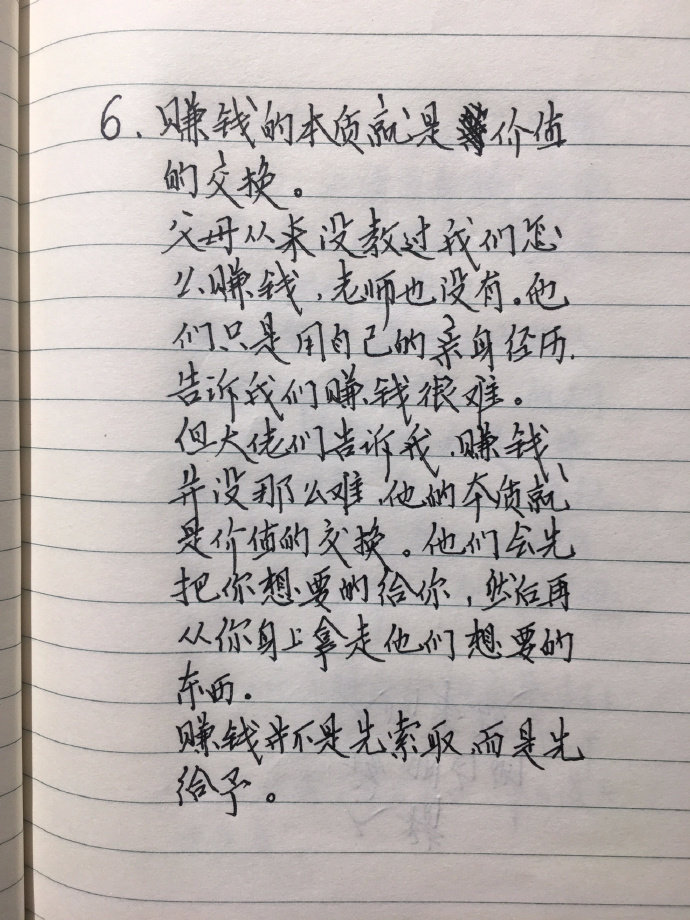 6. 赚钱的本质就是价值
的交换。
父母从来没教过我们怎
么赚钱,老师也没有。他
们只是用自己的亲身经历,
告诉我们赚钱很难。
但大佬们告诉我,赚钱
并没那么难,他的本质就
是价值的交换。他们会先
把你想要的给你,然后再
从你身上拿走他们想要的
东西。
赚钱并不是先索取,而是先
给予。